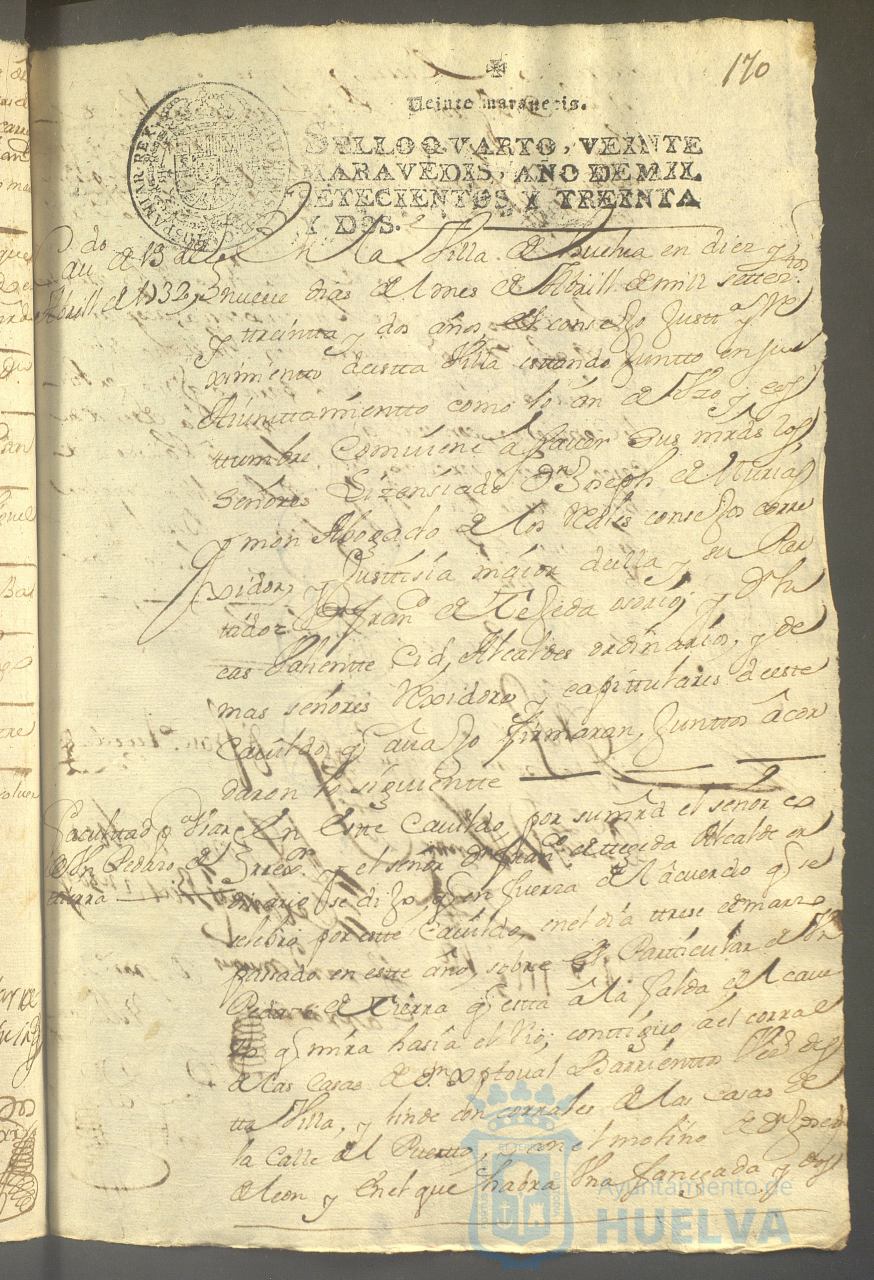 170
Veinte maravedis.
SELLO QVARTO, VEINTE
MARAVEDIS, AÑO DE MIL
SETECIENTOS Y TREINTA
Y DOS.
HISPANIAR REX
En la Villa de Huelva en diez y
nueve dias del mes de Abrill de mill settez.os
y ttreintta y dos años el consejo Justt.a y Re
ximientto destta Villa esttando Juntto en su
Aiunttamientto como lo an de Uzo y cos
ttumbre Comviene a saver sus mrds los
Señores Lizensiado Dn Joseph de
mon Abogado de los Rs consejos corre
xidor, y Justtisia maior della y su Par
tido; Dn Fran.co de Texeda osorio, y Dn Lu
cas Valientte Cid, Alcaldes ordinarios, y de
mas señores Rexidores y capittulares deeste
Cavildo q avajo firmaran, Junttos acor
daron lo siguientte
Cav.do de 19 de
Abrill de 1732
Facultad p.a
Un Pedazo de
tierra
En este Cavildo, por su mrd el señor co
rrex.or y el señor Dn Fran.co de texeda Alcalde or
dinario se dijo, q en fuerza del acuerdo q se
selebro por este Cavildo, en el dia ttrese de marzo
pasado en este año, sobre el Particular de Un
Pedazo de Tierra q esta a la falda del cave
zo q mira hasia el Rio, conttiguo a el corral
de las casas de Dn Xptoval Barrienttos Vez.o des
tta Villa, y linde con corrales de las casas de
la calle del Puertto, y con el molino de Dn Joseph
de leon y en el que habra Una fanegada y dos
Ayuntamiento de
HUELVA